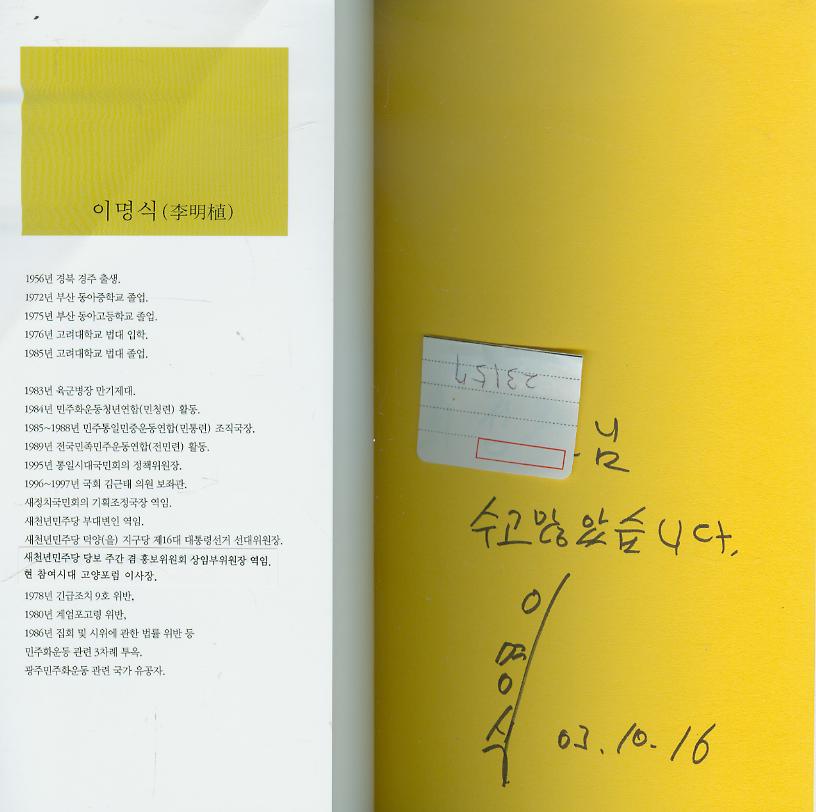 이명식(李明植)
1956년 경북 경주 출생.
1972년 부산 동아중학교 졸업.
1975년 부산 동아고등학교 졸업.
1976년 고려대학교 법대 입학.
1985년 고려대학교 법대 졸업.
1983년 육군병장 만기제대.
1984년 민주화운동청년연합(민청련) 활동.
1985~1988년 민주통일민중운동연합(민통련) 조직국장.
1989년 전국민족민주운동연합(전민련) 활동.
1995년 통일시대국민회의 정책위원장.
1996~1997년 국회 김근태 의원 보좌관.
새정치국민회의 기획조정국장 역임.
새천년민주당 부대변인 역임.
새천년민주당 덕양(을) 지구당 제16대 대통령선거 선대위원장.
새천년민주당 당보 주간 겸 홍보위원회 상임부위원장 역임.
현 참여시대 고양포럼 이사장.
1978년 긴급조치 9호 위반,
1980년 계엄포고령 위반,
1986년 집회 및 시위에 관한 법률 위반 등
민주화운동 관련 3차례 투옥.
광주민주화운동 관련 국가 유공자.
23157
님
수고많았습니다.
이명식
03.10.16